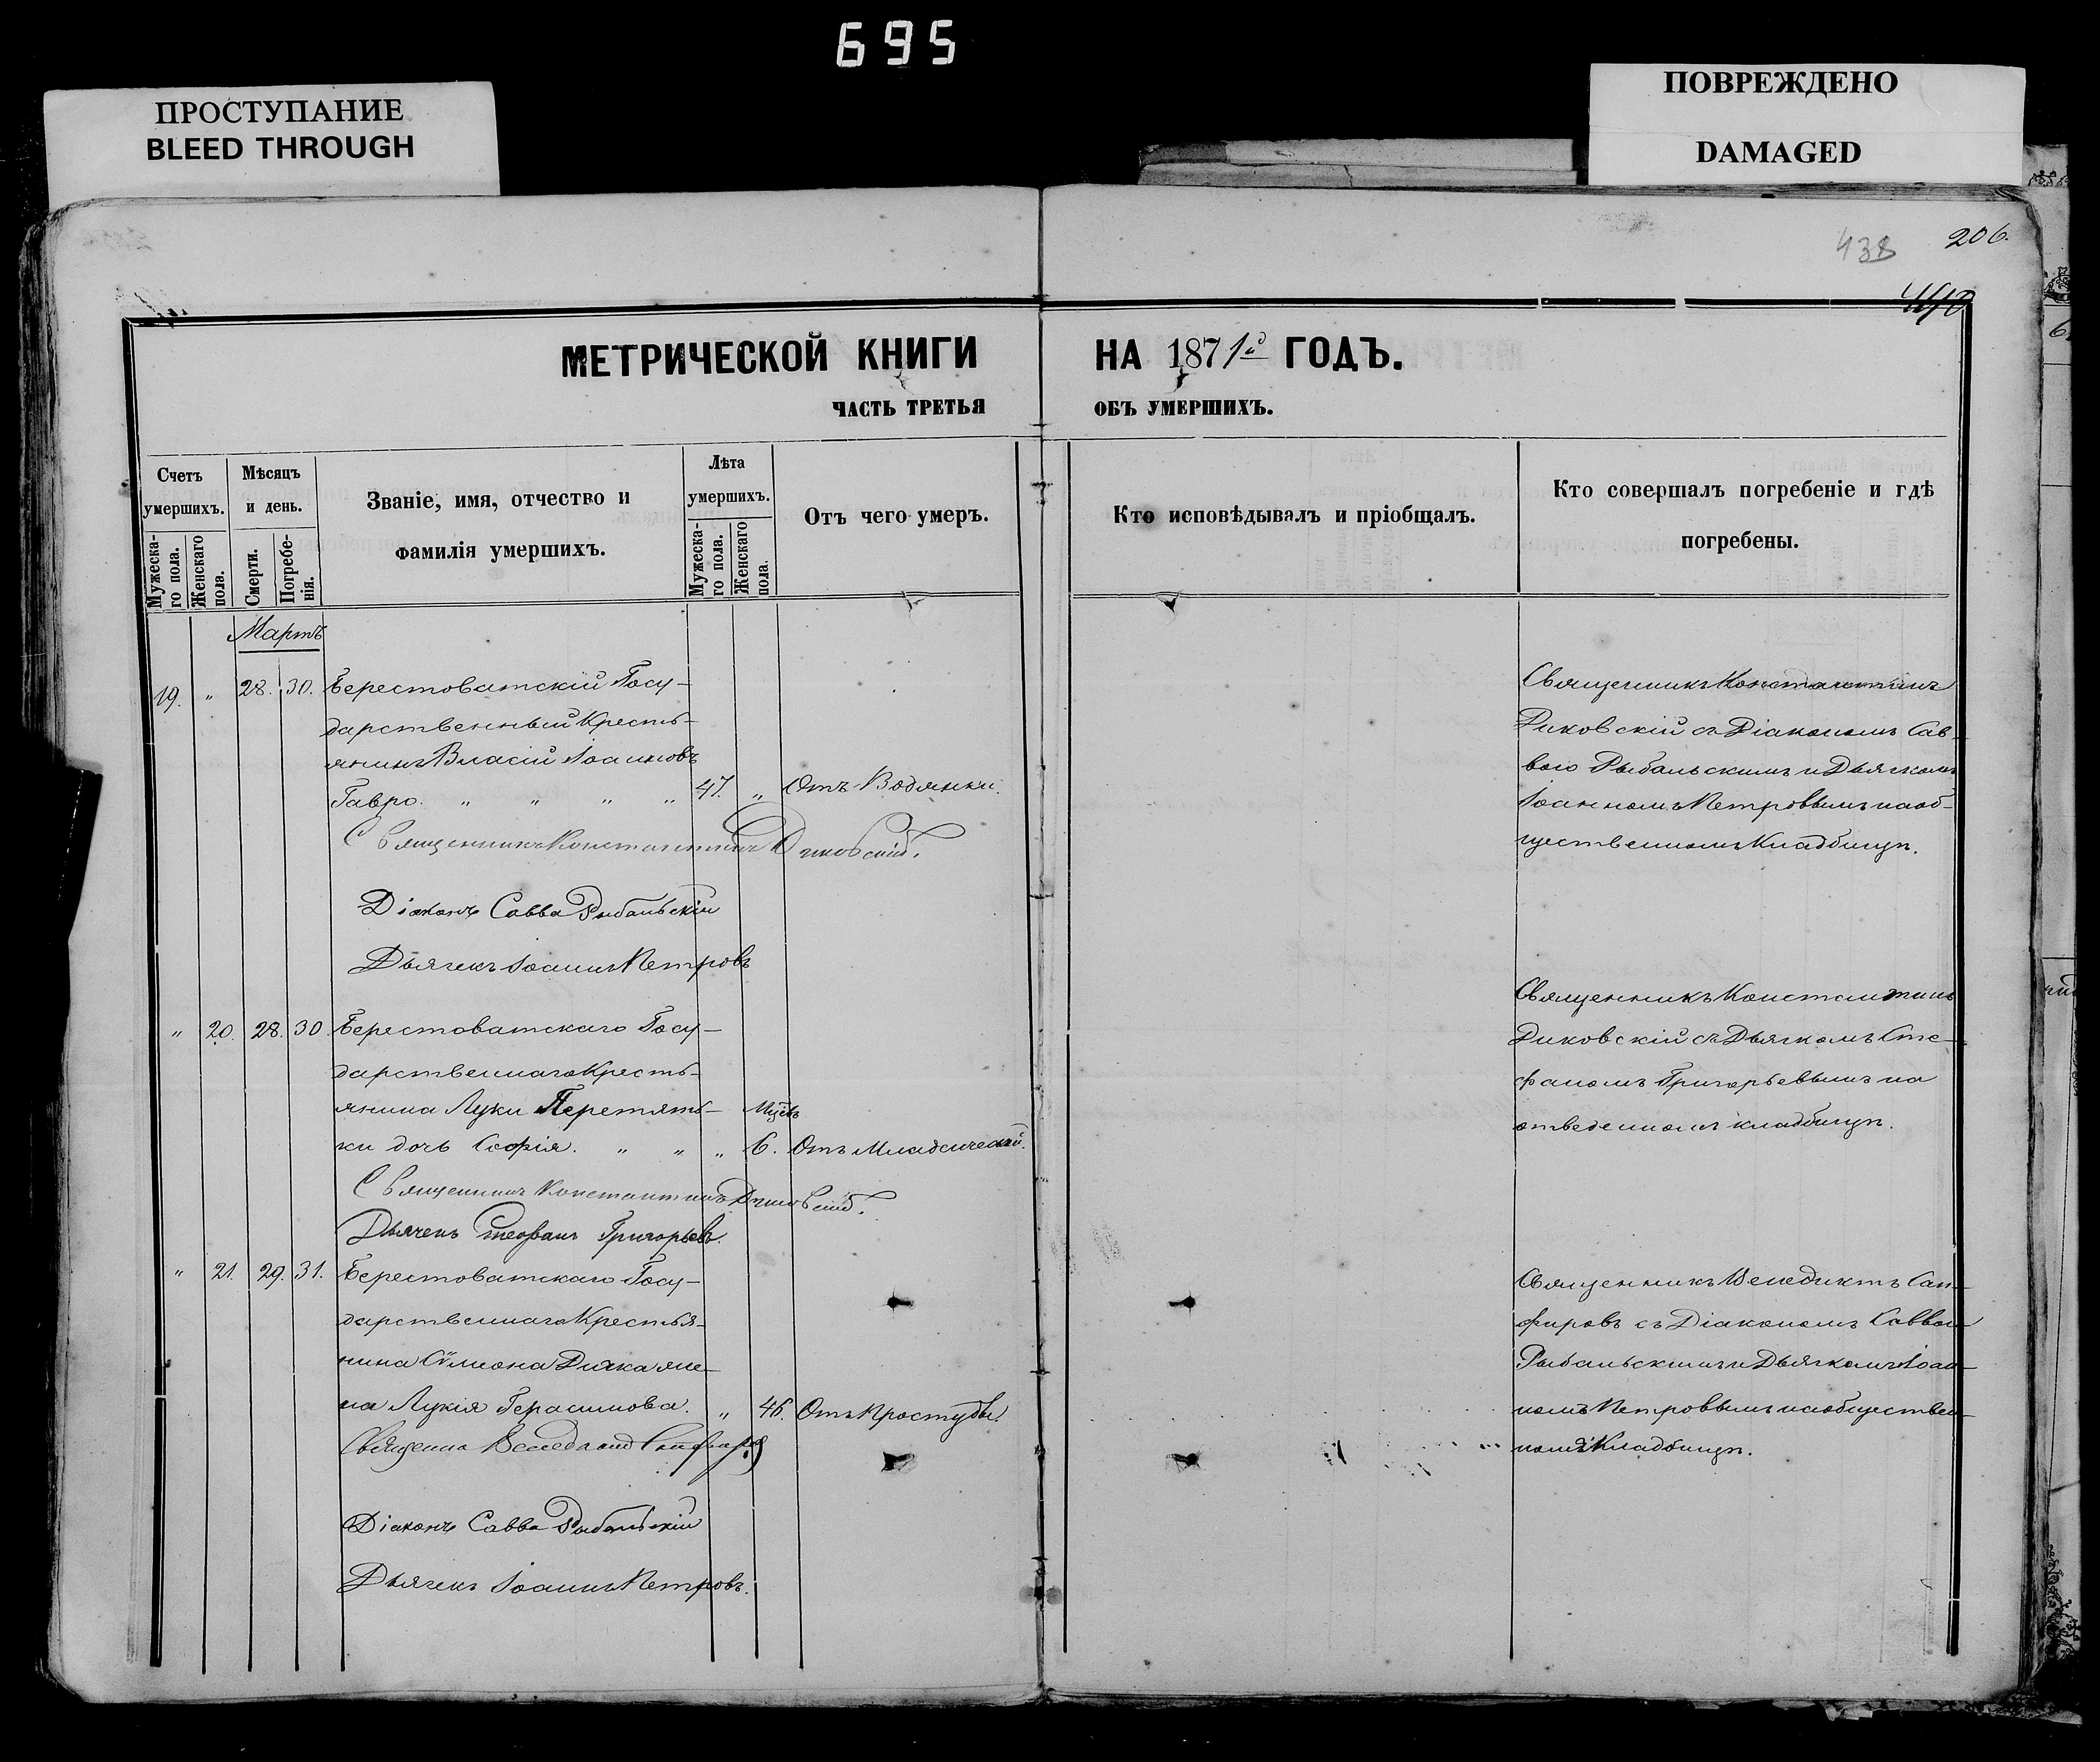 695
ПРОСТУПАНИЕ
BLEED THROUGH
ПОВРЕЖДЕНО
DAMAGED
438
206.
МЕТРИЧЕСКОЙ КНИГИ
НА 1871й ГОДЪ.
ЧАСТЬ ТРЕТЬЯ
ОБЪ УМЕРШИХЪ.
Счетъ умершихъ.
Мужеска-го пола.
Женскаго пола.
Мѣсяцъ и день.
Смерти.
Погребе-нія.
Званіе, имя, отчество и
фамилія умершихъ.
Лѣта умершихъ.
Мужеска-го пола.
Женскаго пола.
Отъ чего умеръ.
Кто исповѣдывалъ и пріобщалъ.
Кто совершалъ погребеніе и гдѣ
погребены.
Мартъ
19. " 28. 30. Берестоватскій Госу-
дарственный Кресть-
янинъ Власій Іоанновъ
Гавро. " " " " 47. " Отъ Водянки.
Священникъ Константинъ Диковскій.
Діаконъ Савва Рыбальскій
Дьячекъ Іоаннъ Петровъ
Священникъ Константинъ
Диковскій съ Діакономъ Сав-
вою Рыбальскимъ и Дьячкомъ
Іоанномъ Петровымъ на об-
щественномъ Кладбищѣ.
" 20. 28. 30. Берестоватскаго Госу-
дарственнаго Кресть-
янина Луки Перетять-
ки дочь Софія. " " " 6. Отъ Младенческой.
Священникъ Константинъ Диковскій.
Дьячекъ Стефанъ Григорьевъ.
Священникъ Константинъ
Диковскій съ Дьячкомъ Сте-
фаномъ Григорьевымъ на
отведенномъ кладбищѣ.
" 21. 29. 31. Берестоватскаго Госу-
дарственнаго Крестья-
нина Сѵмеона Дияка же-
на Лукія Герасимова. " 46. Отъ Простуды.
Священникъ Венедиктъ Сапфировъ
Діаконъ Савва Рыбальскій
Дьячекъ Іоаннъ Петровъ.
Священникъ Венедиктъ Сап-
фировъ съ Діакономъ Саввою
Рыбальскимъ и Дьячкомъ Іоан-
номъ Петровымъ на обществен-
номъ Кладбищѣ.